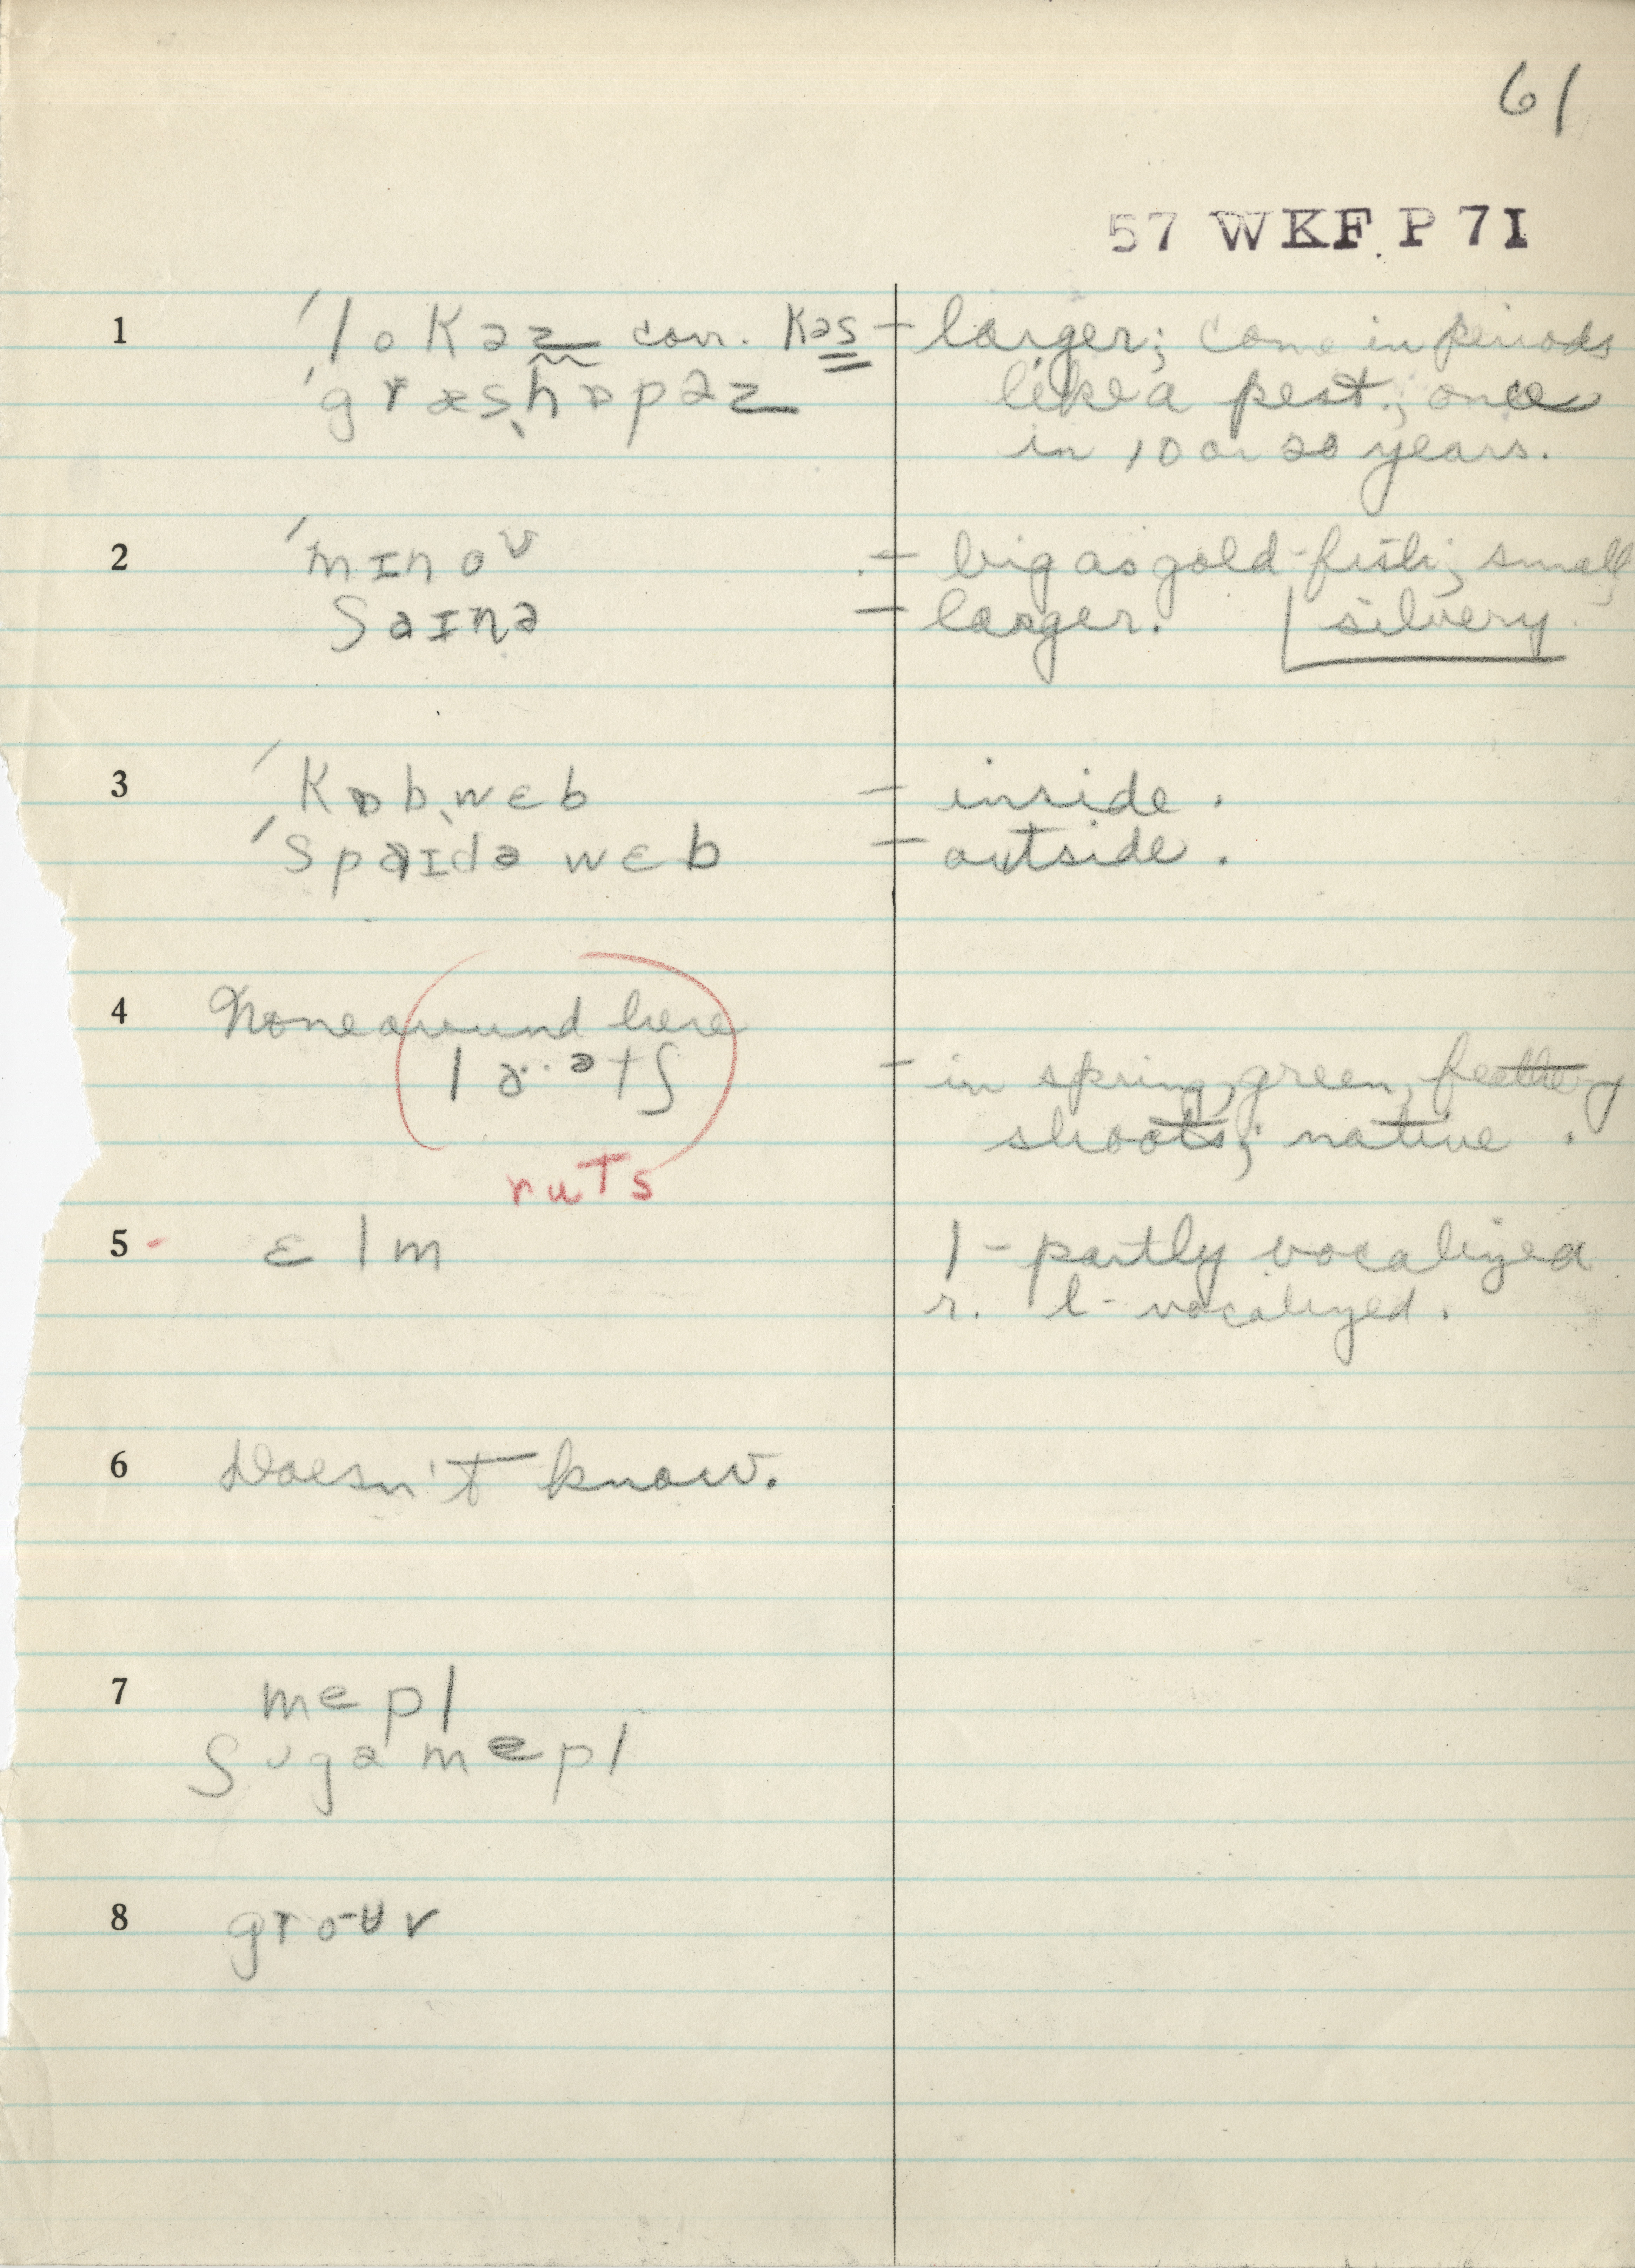 61
57 WKF P 71
1 ˈlokəz corr. kəs – larger; come in periods
ˈgræsˌhɒpəz like a pest; once
in 10 or 20 years.
2 ˈmɪnoʊ – big as gold-fish; small
ʃaɪnə – larger. silvery
3 ˈkɒbˌwɛb – inside.
ˈspaɪdə wɛb – outside.
4 None around here
– in spring, green, feathery
shoots; native.
ruts
5 - ɛlm l – partly vocalized
r. l- vocalized.
6 Doesn't know.
7 mepl
ʃʊgə mepl
8 groʊv